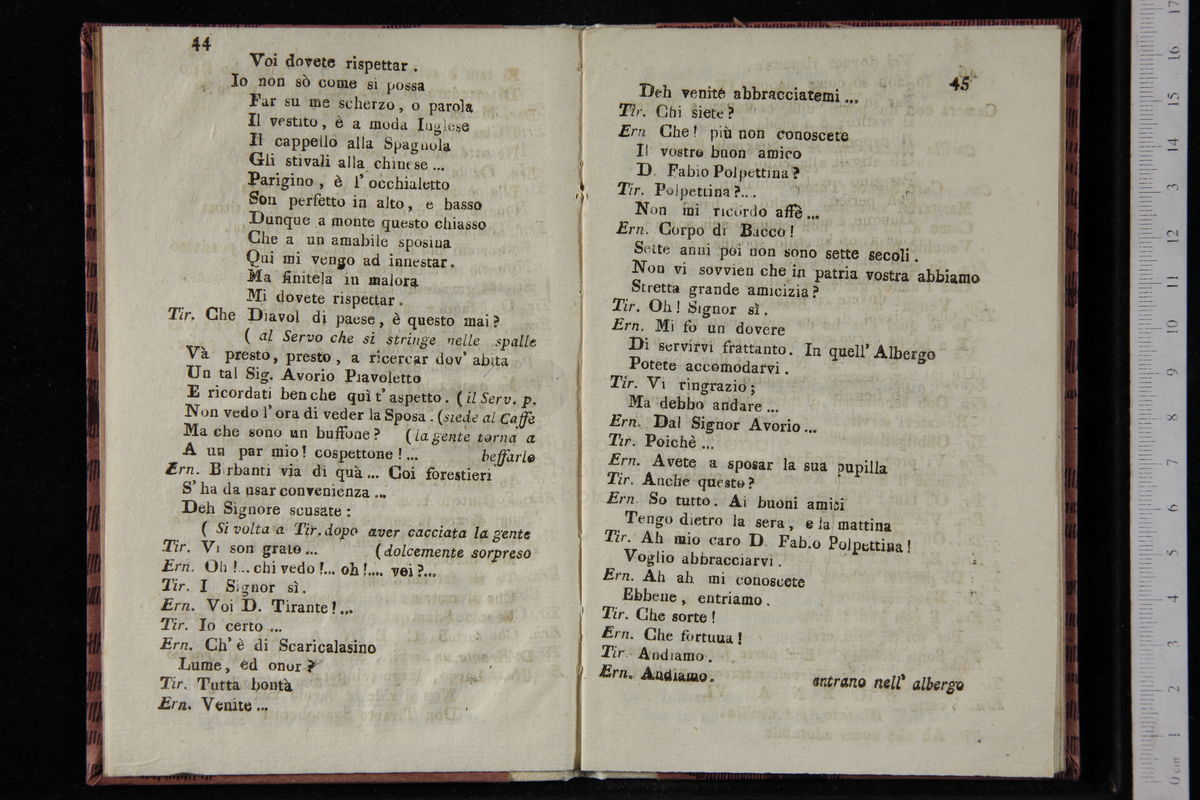 44
Voi dovete rispettar .
Io non sò come si possa
Far su me scherzo, o parola
Il vestito, è a moda Inglese
Il cappello alla Spagnola
Gli stivali alla chinese ...
Parigino , è l' occhialetto
Son perfetto in alto, e basso
Dunque a monte questo chiasso
Che a un amabile sposina
Qui mi vengo ad innestar.
Ma finitela in malora
Mi dovete rispettar.
Tir. Che Diavol di paese, è questo mai?
( al Servo che si stringe nelle spalle
Và presto, presto , a ricercar dov' abita
Un tal Sig. Avorio Piavoletto
E ricordati benche quì t' aspetto. ( il Serv. p.
Non vedo l' ora di veder la Sposa . (siede al Caffè
Ma che sono un buffone? ( la gente torna a
A un par mio! cospettone !... beffarlo
Ern. Birbanti via di quà ... Coi forestieri
S' ha da usar convenienza ...
Deh Signore scusate :
( Si volta a Tir. dopo aver cacciata la gente
Tir. Vi son grato ... (dolcemente sorpreso
Ern. Oh !... chi vedo !... oh !.... voi ?...
Tir. I Signor sì.
Ern. Voi D. Tirante! ...
Tir. Io certo ...
Ern. Ch' è di Scaricalasino
Lume, ed onor ?
Tir. Tutta bontà
Ern. Venite ...
45
Deh venite abbracciatemi ...
Tir. Chi siete?
Ern Che! più non conoscete
Il vostro buon amico
D. Fabio Polpettina?
Tir. Polpettina?...
Non mi ricordo affè ...
Ern. Corpo di Bacco!
Sette anni poi non sono sette secoli.
Non vi sovvien che in patria vostra abbiamo
Stretta grande amicizia?
Tir. Oh! Signor sì.
Ern. Mi fo un dovere
Di servirvi frattanto. In quell' Albergo
Potete accomodarvi.
Tir. Vi ringrazio;
Ma debbo andare ...
Ern. Dal Signor Avorio ...
Tir. Poichè ...
Ern. Avete a sposar la sua pupilla
Tir. Anche questo?
Ern. So tutto. Ai buoni amici
Tengo dietro la sera, e la mattina
Tir. Ah mio caro D. Fabio Polpettina!
Voglio abbracciarvi.
Ern. Ah ah mi conoscete
Ebbene, entriamo.
Tir. Che sorte!
Ern. Che fortuna!
Tir. Andiamo.
Ern. Andiamo. entrano nell' albergo